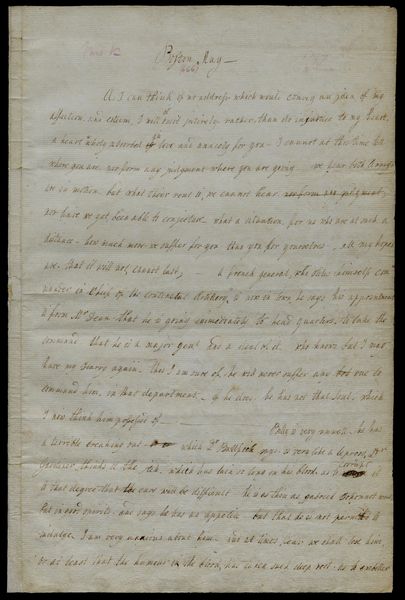 Boston, May —
As I can think of no address which would convey an idea of my
affection, and esteem, I will omit it intirely rather than do injustice to my heart,
a heart wholly absorbed in love and anxiety for you — I cannot at this time tell
where you are, nor form any judgment where you are going — we hear both Armys
are in motion, but what their rout is, we cannot hear, nor form any judgment
nor have we yet been able to conjecture. what a situation, for us who are at such a
distance — how much more we suffer for you than you for yourselves, all my hopes
are, that it will not, cannot last, — a french general, who stiles himself com
mander in Chief of the continental Artillery, is now in town, he says his appointment
is from Mr Dean, that he is going immediately to head quarters, to take the
command that he is a major genl and a deal of it. who knows but I may
have my Harry again. This I am sure of, he will never suffer any one to
command him, in that department — if he does, he has not that Soul, which
I now think him possess'd of —
is very unwell. he has
a terrible breaking out which Dr Bullfinch says is very like a leprosy, Dr
Gardiner, thinks it the itch. which has laid so long in his blood as to corrupt it
to that degree that the cure will be difficult he is as thin as
but in good spirits, and says he has an appetite but that he is not permitted to
indulge. I am very anxious about him — and at times, fear we shall lose him
or at least that the humour in the blood, has taken such deep root — he is another